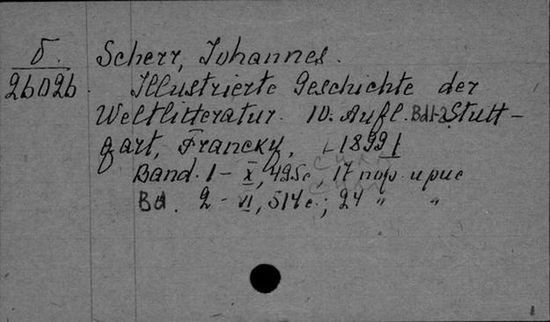 б. Scherr, Johannes.
26026. Illustrierte Geschichte der
Weltlitteratur. 10. Aufl. Bd1-2 Stutt-
gart, Francky, 1899
Band. 1 - X, 425c, 17 пор. и рис
Bd. 2 - VI, 514 с.; 24 " "